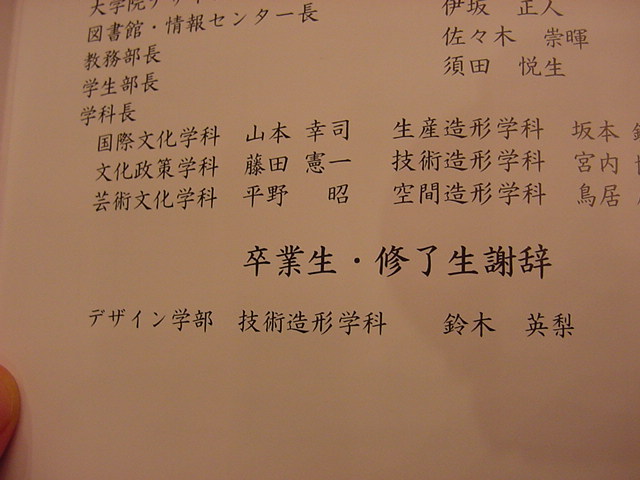 大学院デザイ
図書館・情報センター長 伊坂 正人
教務部長 佐々木 崇暉
学生部長 須田 悦生
学科長
国際文化学科 山本 幸司 生産造形学科 坂本
文化政策学科 藤田 憲一 技術造形学科 宮内
芸術文化学科 平野 昭 空間造形学科 鳥居
卒業生・修了生謝辞
デザイン学部 技術造形学科 鈴木 英梨